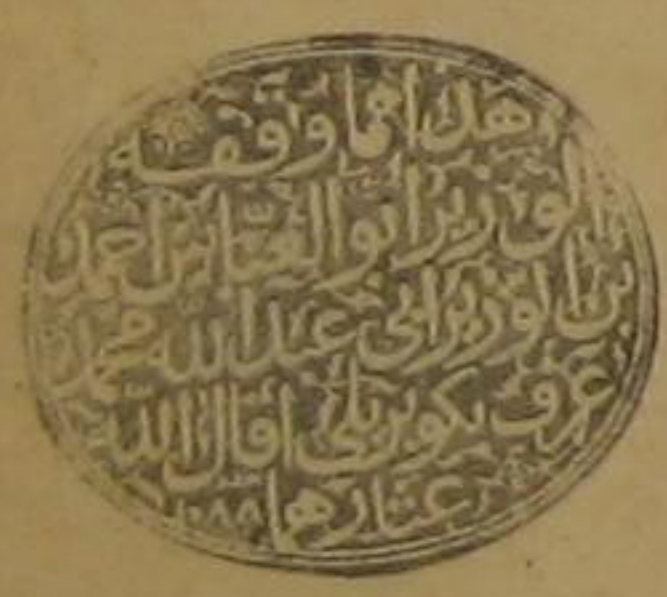 هذا مما وقفه
الوزير أبو العباس أحمد
بن الوزير أبي عبد الله محمد
عرف بكوپريلي أقال الله
عثارهما ١٠٨٨